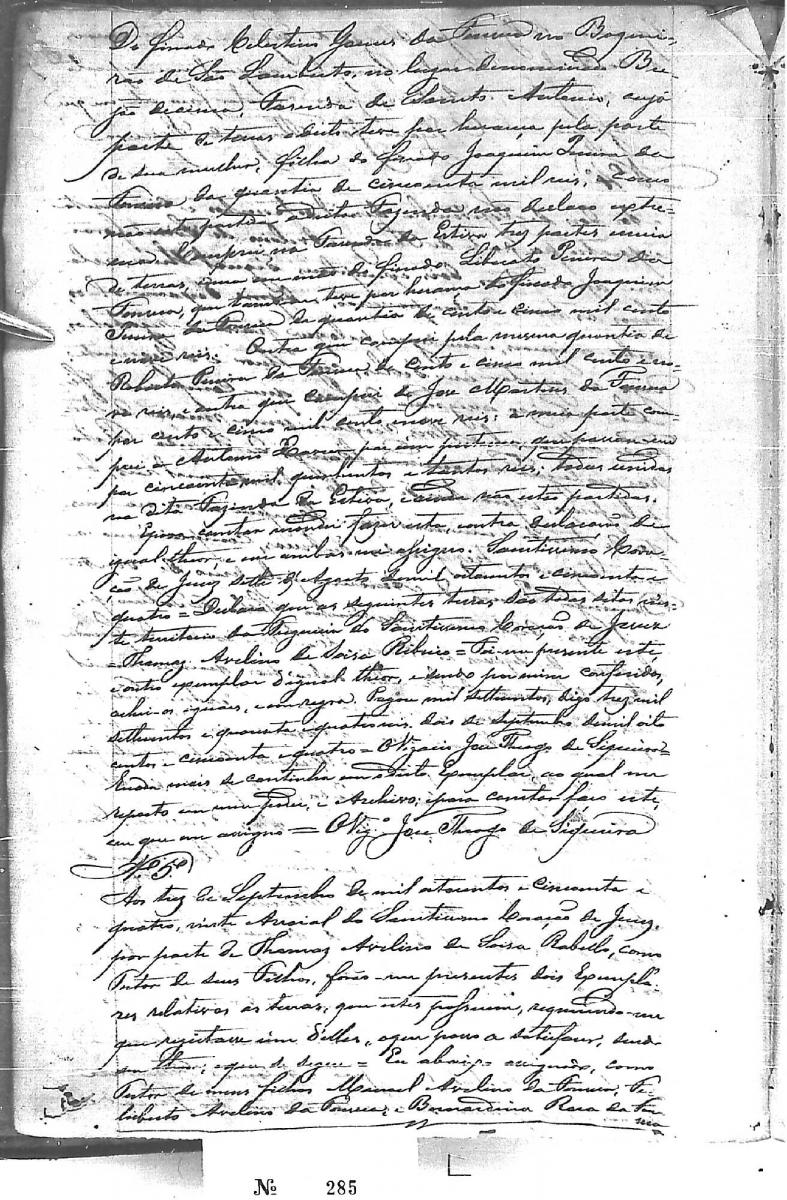 Do finado Celestino Gomes da Fonseca no
rão de São Lamberto, no lugar denominado
de cima, Fazenda de Santo Antonio, cuja
parte de terras o dito teve por herança pela parte
de sua mulher, filha do finado Joaquim Pereira da
Fonseca da quantia de cincoenta mil reis,
partida a dita Fazenda não declaro extre-
mas. Comprei na Fazenda da Estiva tres partes
de terras, uma em mão do finado Liberato Pereira da
Fonseca, que tambem teve por herança do finado Joaquim
Pereira da Fonseca da quantia de cento e cinco mil cento
e nove reis. Outra que comprei pela mesma quantia de
Roberto Pereira da Fonseca de cento e cinco mil cento e no-
ve reis, e outra que comprei de Jose Martins da Fonseca
por cento e cinco mil cento nove reis: e mais parte com-
prei a Antonio por
por cincoenta mil quinhentos e tantos reis; todas unidas
na dita Fazenda da Estiva, e ainda não estão partidas.
E para constar mandei fazer esta, e outra declaração de
igual theor, e em ambas me assigno. Santissimo Cora-
ção de Jesus sette d'Agosto de mil oitocentos e cincoenta e
quatro = Declaro que as seguintes terras são todas sitas nes-
te territorio da Freguezia do Santissimo Coração de Jesus
= Thomaz Avelino de Soisa Ribeiro = Foi-me presente este
e outro exemplar d'igual theor, e sendo por mim conferidos,
achei-os iguaes, e em regra. Pagou mil settecentos, digo trez mil
settecentos e quarenta e quatro reis. dois de Septembro de mil oito
centos e cincoenta e quatro = O Vigario Joze Thiago de Siqueira =
E nada mais se continha em o dito Exemplar, ao qual me
reporto em meu poder, e Archivo; e para constar faço este,
em que me assigno = O Vigº Joze Thiago de Siqueira
Nº 5º
Aos trez de Septembro de mil oitocentos e cincoenta e
quatro, neste Arraial do Santissimo Coração de Jesus,
por parte de Thomaz Avelino de Soisa Rabello, como
Tutor de seus Filhos, forão-me presentes dois Exempla-
res relativos as terras, que estes possuem, requerendo-me
que registasse um d'elles, o que passo a satisfazer, sendo
seu theor, o que se segue = Eu abaixo assignado, como
Tutor de meus filhos Manoel Avelino da Fonseca, Fe-
lisberto Avelino da Fonseca, e Bernardina Roza da Fon-
seca
Nº 285